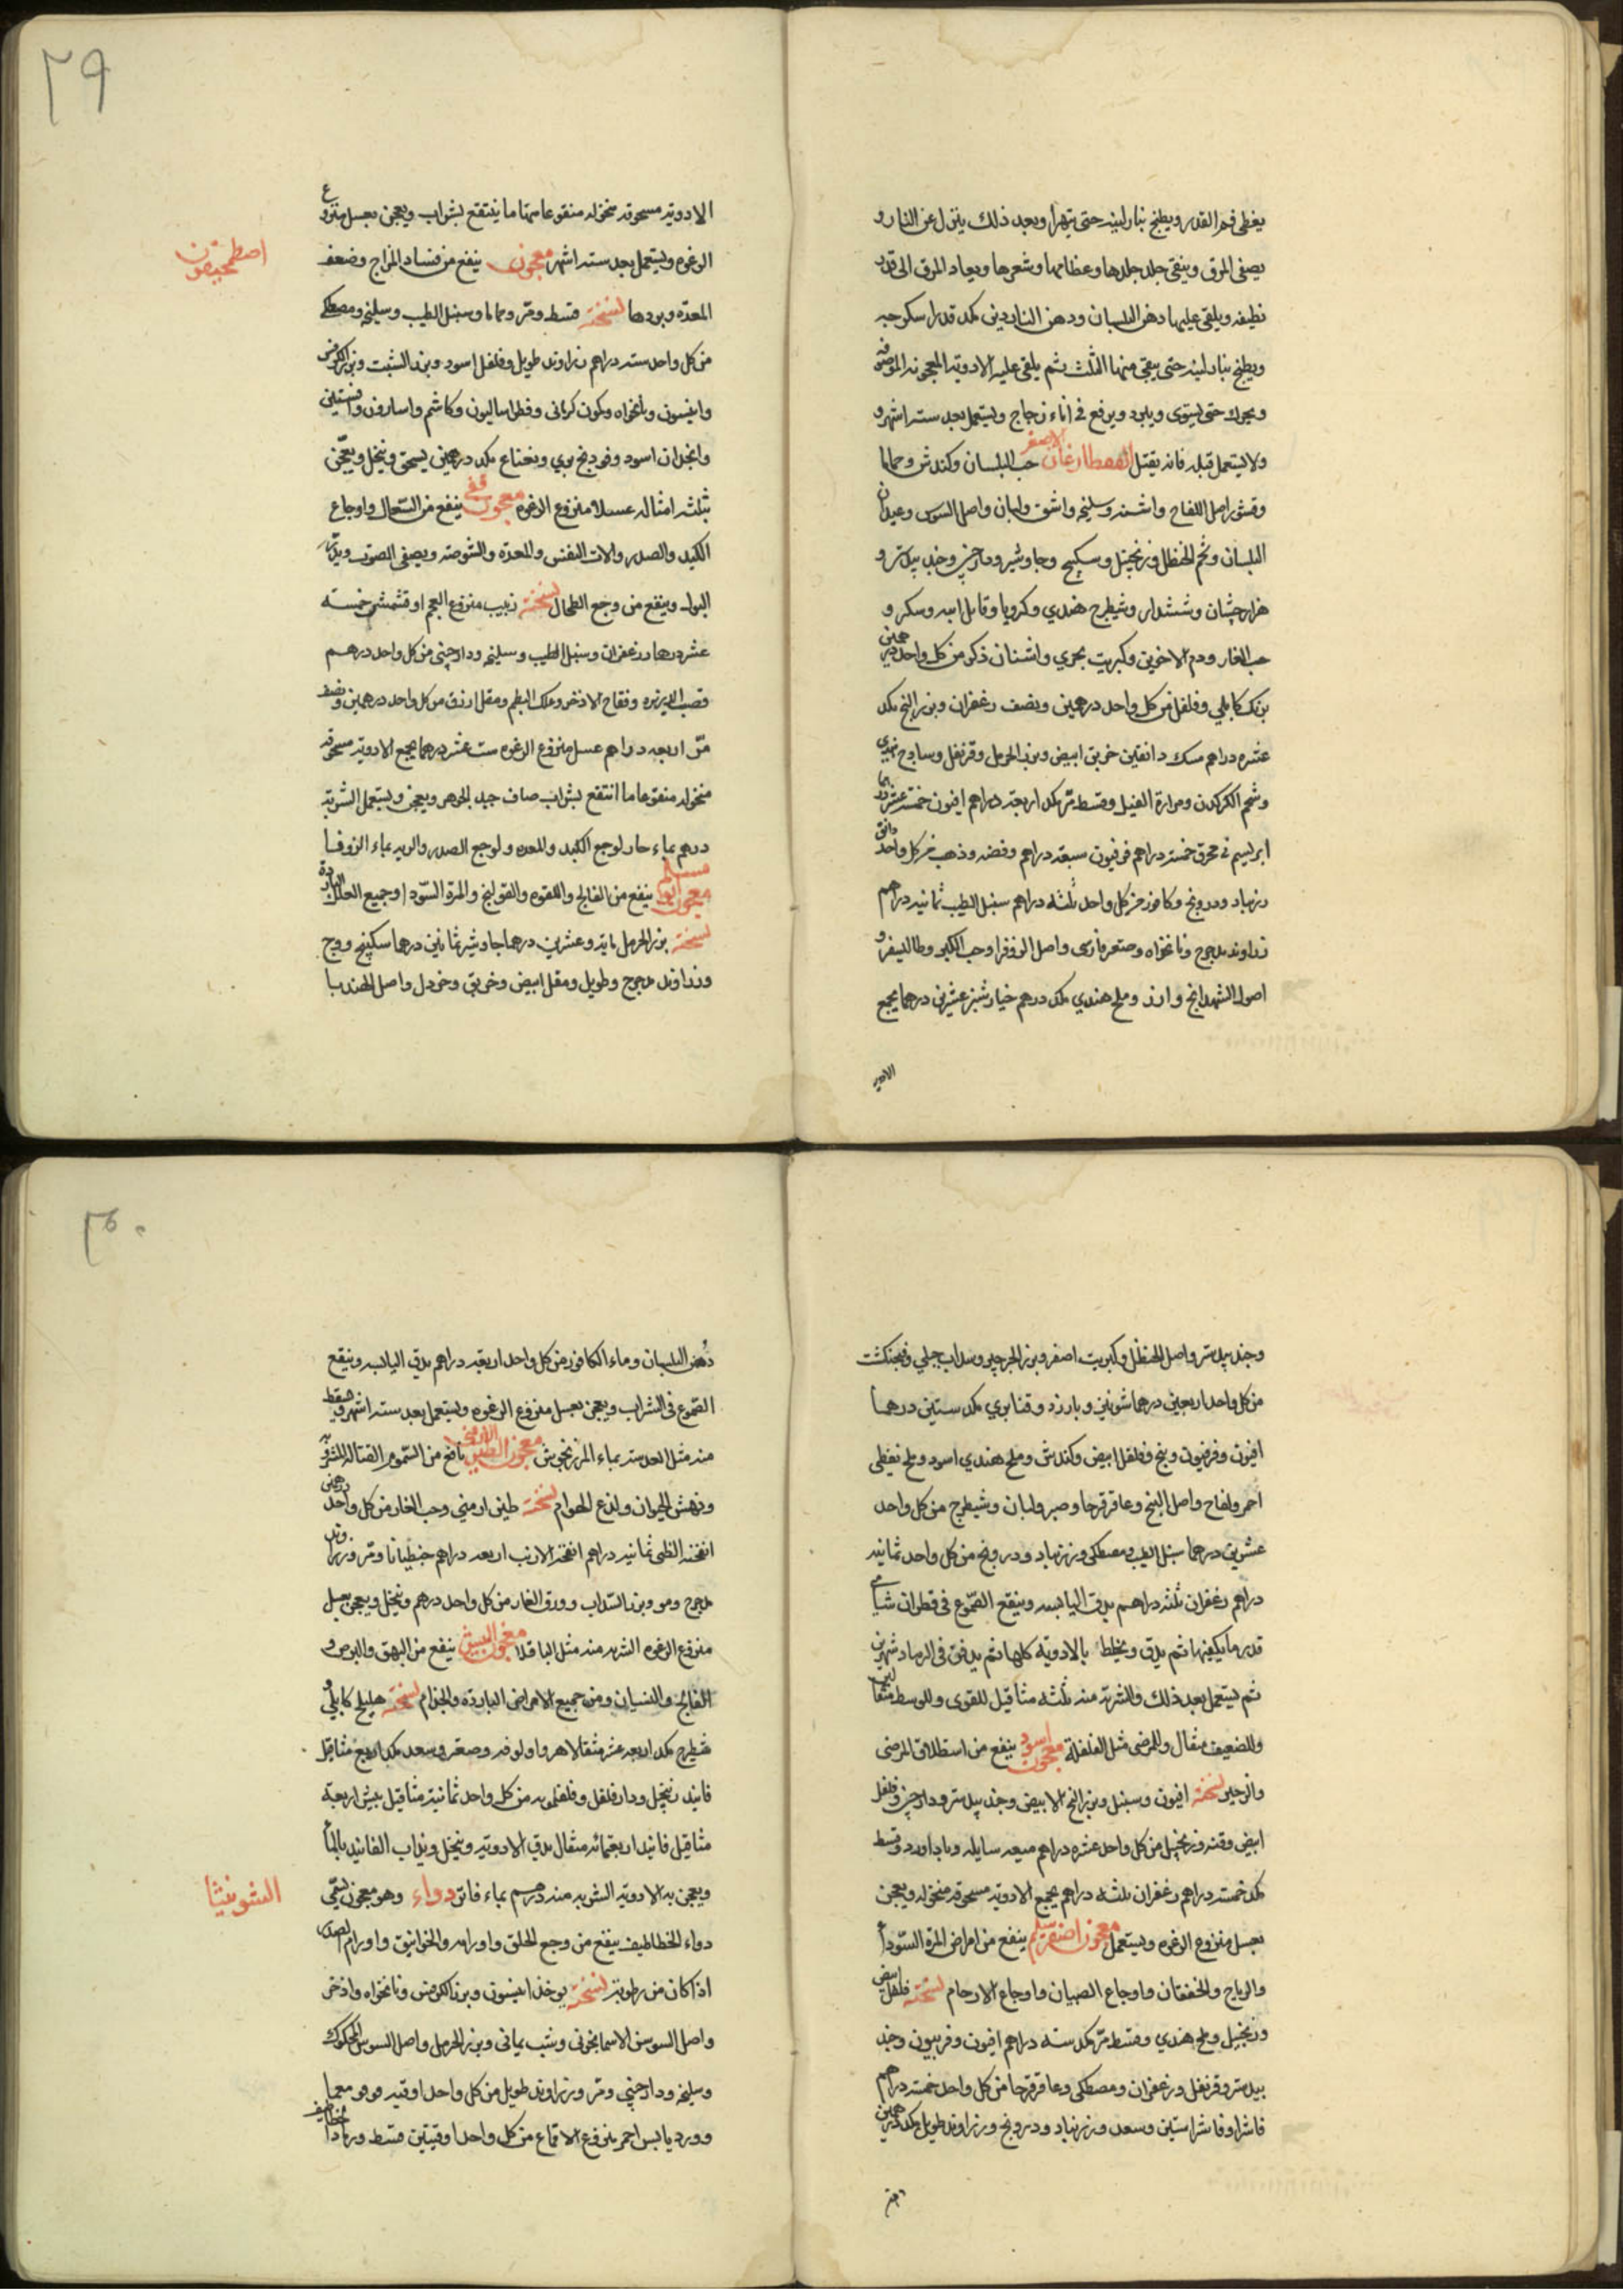 يغطى فم القدر ويطبخ بنار لينه حتى يتهرا وبعد ذلك ينزل عن النار و
يصفى المرق وينقى جلد جلدها وعظامها وشعرها ويعاد المرق الى قدر
نظيفه ويلقى عليها دهن البلسان ودهن الناردين مكد قدر اسكوجه
ويطبخ بنار لينه حتى يبقى منها الثلث ثم يلقى عليه الادويه المعجونه الموصوفه
ويحرك حتى يستوى ويبرد ويرفع فى اناء زجاج ويستعمل بعد سته اشهر و
ولا يستعمل قبله فانه يقتل الاصغر حب البلسان وكندش وحماما
وقشور اصل اللفاح واشنه وسليخه واشق ولبان واصل السوس وعيدان
البلسان وشحم الحنظل وزنجبيل وسكبينج وجاوشير ودارچينى وجندبيدستر و
هزارجشان وششندار وشيطرج هندي وكرويا وقاتل ابيه وسكر و
حب الغار ودم الاخوين وكبريت بحري واشنان ذكر من كل واحد درهمين
برنك كابلي وفلفل من كل واحد درهمين ونصف زعفران وبزر البنج مكد
عشره دراهم مسك دانقين خربق ابيض وبزر الحرمل وقرنفل وساذج هندي
وشحم الكركدن ومرارة الفيل وقسط مر مكد اربعة دراهم افيون خمسة عشر درهما
ابريسم نى محرق خمسة دراهم فرفيون سبعة دراهم وفضه وذهب من كل واحد دانق
زرنباد ودرونج وكافور من كل واحد ثلثه دراهم سنبل الطيب ثمانيه دراهم
زراوند مدحرج ونانخواه وصعتر فارسى واصل اللوفرا وحب الكبر وطاليسفر و
اصول الشهدانج وارز وملح هندي مكد درهم خيارشنبر عشرين درهما يجمع
الادويه
٢٩
الادويه مسحوقه منخوله منقوعا منها ما ينتقع بشراب ويعجن بعسل منزوع
الرغوه ويستعمل بعد سته اشهر معجون ينفع من فساد المزاج وضعف
اصطمحيقون
المعده وبردها نسخته قسط ومر وحماما وسنبل الطيب وسليخه ومصطكى
من كل واحد سته دراهم زراوند طويل وفلفل اسود وبزر الشبت وبزر الكرفس
وانيسون ونانخواه وكمون كرمانى وفطراساليون وكاشم واسارون وافسنتين
وانجدان اسود وفودنج بري ونعناع مكد درهمين يسحق وينخل ويعجن
بثلثه امثاله عسلا منزوع الرغوه معجون قفى ينفع من السعال واوجاع
الكبد والصدر والات النفس والمعده والشوصه ويصفى الصوت ويدر
البول وينفع من وجع الطحال نسخته زبيب منزوع العجم او قشمش خمسه
عشر درهما زعفران وسنبل الطيب وسليخه ودارچينى من كل واحد درهم
قصب الذريره وفقاح الاذخر وعلك البطم ومقل ازرق من كل واحد درهمين ونصف
مر اربعه دراهم عسل منزوع الرغوه ست عشر درهما يجمع الادويه مسحوقه
منخوله منقوعا ما انتقع بشراب صاف جيد الجوهر ويعجن ويستعمل الشربه
درهم بماء حار لوجع الكبد والمعده ولوجع الصدر والريه بماء الزوفا
معجون ابو مسلم ينفع من الفالج واللقوه والقولنج والمرة السودا وجميع العلل البارده
نسخته بزر الحرمل مايه وعشرين درهما جاوشير ثمانين درهما سكبينج ووج
وزراوند مدحرج وطويل ومقل ابيض وخربق وخردل واصل الهندبا
وجندبيدستر واصل الحنظل وكبريت اصفر وبزر الجرجير وسداب جبلي وفنجنكشت
من كل واحد اربعين درهما شونيز وبارزد وقنابري مكد ستين درهما
افيون وفرفيون وبنج وفلفل ابيض وكندش وملح هندي اسود وملح نفطى
احمر ولفاح واصل البنج وعاقرقرحا وصبر ولبان وشيطرج من كل واحد
عشرين درهما سنبل الطيب ومصطكى وزرنباد ودرونج من كل واحد ثمانيه
دراهم زعفران ثلثه دراهم يدق اليابسه وينقع الصموغ فى قطران شامى
قدر ما يكفيها ثم يدق ويخلط بالادوية كلها ثم يدفن فى الرماد شهرين
ثم يستعمل بعد ذلك والشربة منه ثلثه مثاقيل للقوى وللوسط مثقالين
وللضعيف مثقال وللمرضى مثل الفلفلة معجون اسود ينفع من استطلاق المرضى
والزحير نسخته افيون وسنبل وبزر البنج الابيض وجندبيدستر ودارچينى وفلفل
ابيض وقنه وزنجبيل من كل واحد عشره دراهم ميعه سايله وباداورد وقسط
مكد خمسه دراهم زعفران ثلثه دراهم يجمع الادويه مسحوقه منخوله ويعجن
بعسل منزوع الرغوه ويستعمل معجون اصفر سليم ينفع من امراض المرة السودا
والرياح والخفقان واوجاع الصبيان واوجاع الارحام نسخته فلفل ابيض
وزنجبيل وملح هندي وقسط مر مكد سته دراهم افيون وفربيون وجند
بيدستر وقرنفل وزعفران ومصطكى وعاقرقرحا من كل واحد خمسه دراهم
فاشرا وفاشراستين وسعد وزرنباد ودرونج وزراوند طويل مكد درهمين
دهن
٣٠
دهن البلسان وماء الكافور من كل واحد اربعه دراهم يدق اليابسه وينقع
الصموغ فى الشراب ويعجن بعسل منزوع الرغوه ويستعمل بعد سته اشهر ويسقط
منه مثل العدسه بماء المرزنجوش معجون الطين الارمنى نافع من السموم القتاله المشروبه
ونهش الحيوان ولذع الهوام نسخته طين ارمني وحب الغار من كل واحد درهمين
انفحة الظبى ثمانيه دراهم انفحة الارنب اربعه دراهم جنطيانا ومر وزراوند
مدحرج ومو وبزر السداب وورق الغار من كل واحد درهم وينخل ويعجن بعسل
منزوع الرغوه الشربه منه مثل الباقلا معجون البيش ينفع من البهق والبرص و
الفالج والنسيان ومن جميع الامراض البارده والجذام نسخته هليلج كابلي و
شيطرج مكد اربعه عشر مثقالا هر واولوفه وصعتر وسعد مكد اربع مثاقيل
فانيد زنجبيل ودارفلفل وفلفلمويه من كل واحد ثمانية مثاقيل بيش اربعة
مثاقيل فانيد اربعمائه مثقال يدق الادويه وينخل ويذاب الفانيد بالماء
ويعجن به الادويه الشربه منه درهم بماء فاتر دواء وهو معجون يسمى
الشونيثا
دواء الخطاطيف ينفع من وجع الحلق واورامه والخوانيق واورام الصدر
اذا كان من رطوبه نسخته يوخذ انيسون وبزر الكرفس ونانخواه واذخر
واصل السوسن الاسمانجونى وشب يمانى وبزر الحرمل واصل السوس المحكوك
وسليخه ودارچينى ومر وزراوند طويل من كل واحد اوقيه قوقومعما
وورد يابس احمر منزوع الاقماع من كل واحد اوقيتين قسط ورماد الخطاطيف